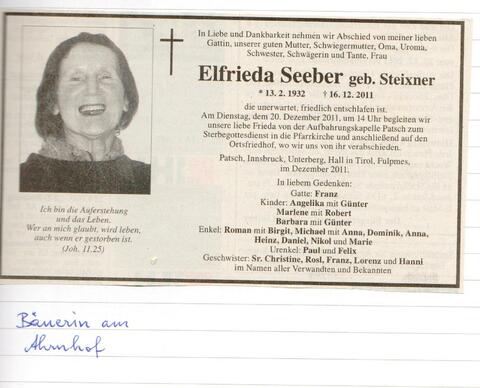 In Liebe und Dankbarkeit nehmen wir Abschied von meiner lieben
Gattin, unserer guten Mutter, Schwiegermutter, Oma, Uroma,
Schwester, Schwägerin und Tante, Frau
Elfrieda Seeber geb. Steixner
* 13. 2. 1932    † 16. 12. 2011
die unerwartet, friedlich entschlafen ist.
Am Dienstag, dem 20. Dezember 2011, um 14 Uhr begleiten wir
unsere liebe Frieda von der Aufbahrungskapelle Patsch zum
Sterbegottesdienst in die Pfarrkirche und anschließend auf den
Ortsfriedhof, wo wir uns von ihr verabschieden.
Patsch, Innsbruck, Unterberg, Hall in Tirol, Fulpmes,
im Dezember 2011.
In liebem Gedenken:
Gatte: Franz
Kinder: Angelika mit Günter
Marlene mit Robert
Barbara mit Günter
Enkel: Roman mit Birgit, Michael mit Anna, Dominik, Anna,
Heinz, Daniel, Nikol und Marie
Urenkel: Paul und Felix
Geschwister: Sr. Christine, Rosl, Franz, Lorenz und Hanni
im Namen aller Verwandten und Bekannten
Ich bin die Auferstehung
und das Leben.
Wer an mich glaubt, wird leben,
auch wenn er gestorben ist.
(Joh. 11.25)
Bäuerin am
Ahrnhof